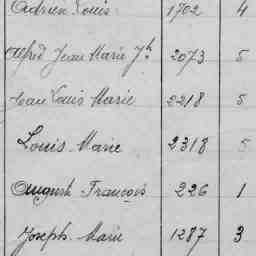 Adrien Louis 1702 4
Alfred Jean Marie Jh 2073 5
Jean Louis Marie 2218 5
Louis Marie 2318 5
Auguste François 226 1
Joseph Marie 1287 3